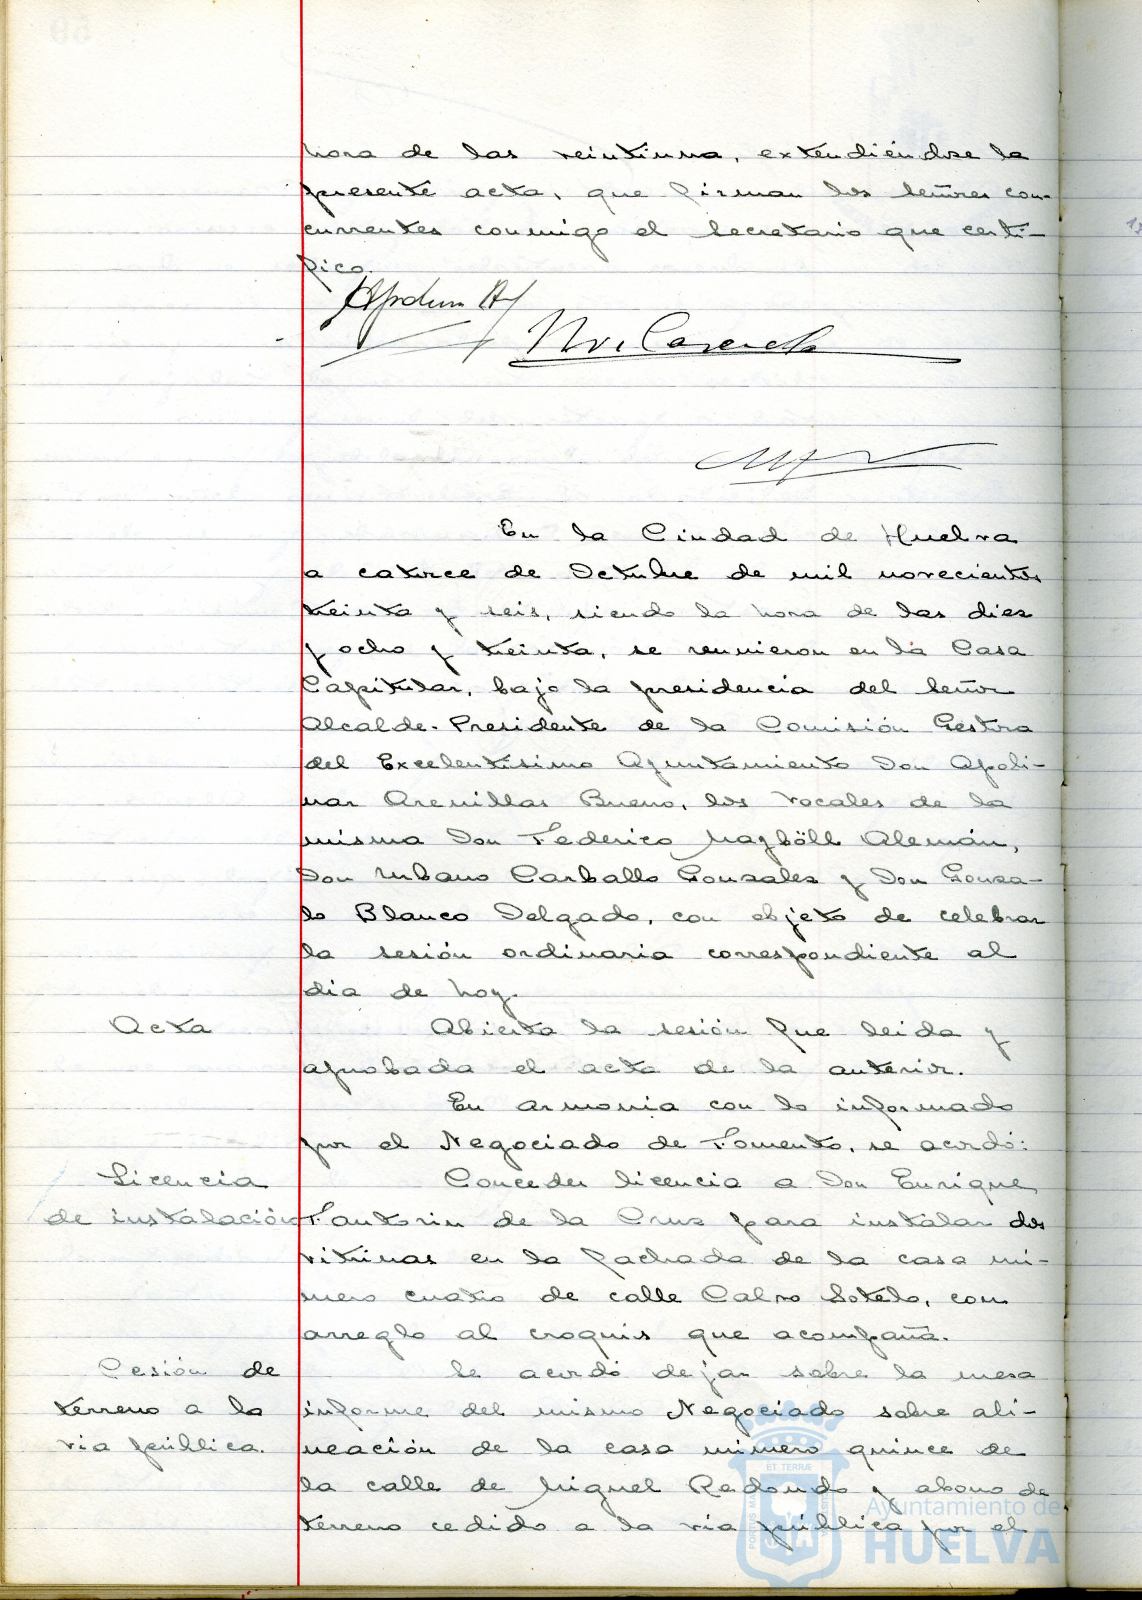 hora de las veintiuna, extendiéndose la
presente acta, que firman los señores con-
currentes conmigo el Secretario que certi-
fico.
En la Ciudad de Huelva
a catorce de Octubre de mil novecientos
treinta y seis, siendo la hora de las diez
y ocho y treinta, se reunieron en la Casa
Capitular, bajo la presidencia del Señor
Alcalde-Presidente de la Comisión Gestora
del Excelentísimo Ayuntamiento Don Apoli-
nar Arenillas Bueno, los Vocales de la
misma Don Federico Mayböll Alemán,
Don Urbano Carballo Gonzales y Don Gonza-
lo Blanco Delgado, con objeto de celebrar
la sesión ordinaria correspondiente al
día de hoy.
Acta
Abierta la sesión fue leída y
aprobada el acta de la anterior.
En armonía con lo informado
por el Negociado de Fomento, se acordó:
Licencia
de instalación
Conceder licencia a Don Enrique
Tantorin de la Cruz para instalar dos
vitrinas en la fachada de la casa nú-
mero cuatro de calle Calvo Sotelo, con
arreglo al croquis que acompaña.
Cesión de
terreno a la
vía pública.
Se acordó dejar sobre la mesa
informe del mismo Negociado sobre ali-
neación de la casa número quince de
la calle de Miguel Redondo y abono de
terreno cedido a la vía pública por el
PORTUS MARIS ET TERRÆ CUSTODIA
Ayuntamiento de
HUELVA